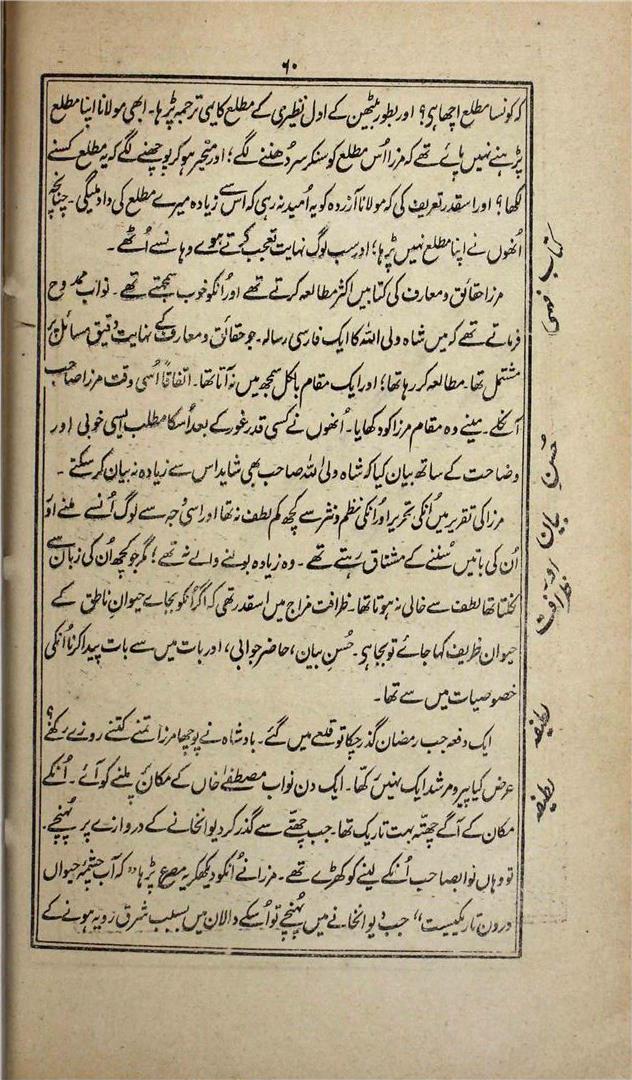 ۶۰
کہ کونسا مطلع اچھا ہی؟ اور بطور تبئین کے اول نظیری کے مطلع کا یہی ترجمہ پڑہا۔ ابھی مولانا اپنا مطلع
پڑہنے نہیں پائے تھے کہ مرزا اُس مطلع کو سنکر سر دھننے لگے؛ اور متحیر ہو کر پوچھنے لگے کہ یہ مطلع کسنے
لکھا؟ اور اسقدر تعریف کی کہ مولانا آزردہ کو یہ اُمید نہ رہی کہ اس سے زیادہ میرے مطلع کی داد ملیگی۔ چنانچہ
اُنھوں نے اپنا مطلع نہیں پڑہا؛ اور سب لوگ نہایت تعجب کرتے ہوے وہانسے اُٹھے۔
مرزا حقائق و معارف کی کتابیں اکثر مطالعہ کرتے تھے اور اُنکو خوب سمجھتے تھے۔ نواب ممدوح
فرماتے تھے کہ میں شاہ ولی اللہ کا ایک فارسی رسالہ۔ جو حقائق و معارف کے نہایت دقیق مسائل پر
مشتمل تھا۔ مطالعہ کر رہا تھا؛ اور ایک مقام بالکل سمجھ میں نہ آتا تھا۔ اتفاقاً اُسی وقت مرزا صاحب
آنکلے۔ مینے وہ مقام مرزا کو دکھایا۔ اُنھوں نے کسی قدر غور کے بعد اُسکا مطلب ایسی خوبی اور
وضاحت کے ساتھ بیان کیا کہ شاہ ولی اللہ صاحب بھی شاید اس سے زیادہ نہ بیان کر سکتے۔
مرزا کی تقریر میں اُنکی تحریر اور اُنکی نظم و نثر سے کچھ کم لطف نہ تھا اور اسی وجہ سے لوگ اُنسے ملنے اور
اُن کی باتیں سُننے کے مشتاق رہتے تھے۔ وہ زیادہ بولنے والے نہ تھے؛ مگر جو کچھ اُن کی زبان سے
نکلتا تھا لطف سے خالی نہ ہوتا تھا۔ ظرافت مزاج میں اسقدر تھی کہ اگر اُنکو بجاے حیوانِ ناطق کے
حیوان ظریف کہا جائے تو بجا ہی۔ حُسنِ بیان، حاضر جوابی، اور بات میں سے بات پیدا کرنا اُنکی
خصوصیات میں سے تھا۔
ایک دفعہ جب رمضان گذر چکا تو قلعے میں گئے۔ بادشاہ نے پوچھا مرزا تمنے کتنے روزے رکھے؟
عرض کیا پیر و مرشد ایک نہیں رکھا۔ ایک دن نواب مصطفیٰ خاں کے مکان پر ملنے کو آئے۔ اُنکے
مکان کے آگے چھتہ بہت تاریک تھا۔ جب چھتے سے گذر کر دیوانخانے کے دروازے پر پہنچے۔
تو وہاں نواب صاحب اُنکے لینے کو کھڑے تھے۔ مرزا نے اُنکو دیکھکر یہ مصرع پڑہا، ”کہ آب چشمۂ حیواں
درون تاریکیست“ جب دیوانخانے میں پُہنچے تو اُسکے دالان میں بسبب شرق رویہ ہونے کے
کتاب فہمی
حُسنِ بیان اور ظرافت
لطیفہ
لطیفہ